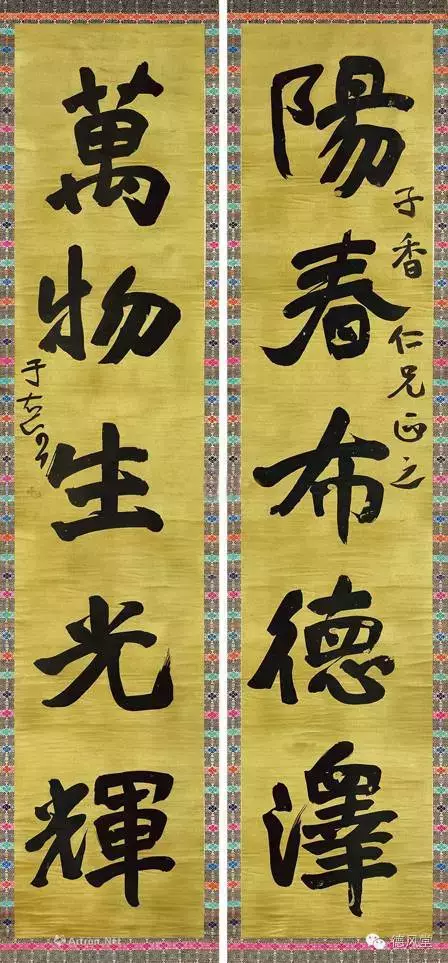 陽春布德澤
子香仁兄正之
萬物生光輝
于右任
Artron.Net
德风堂